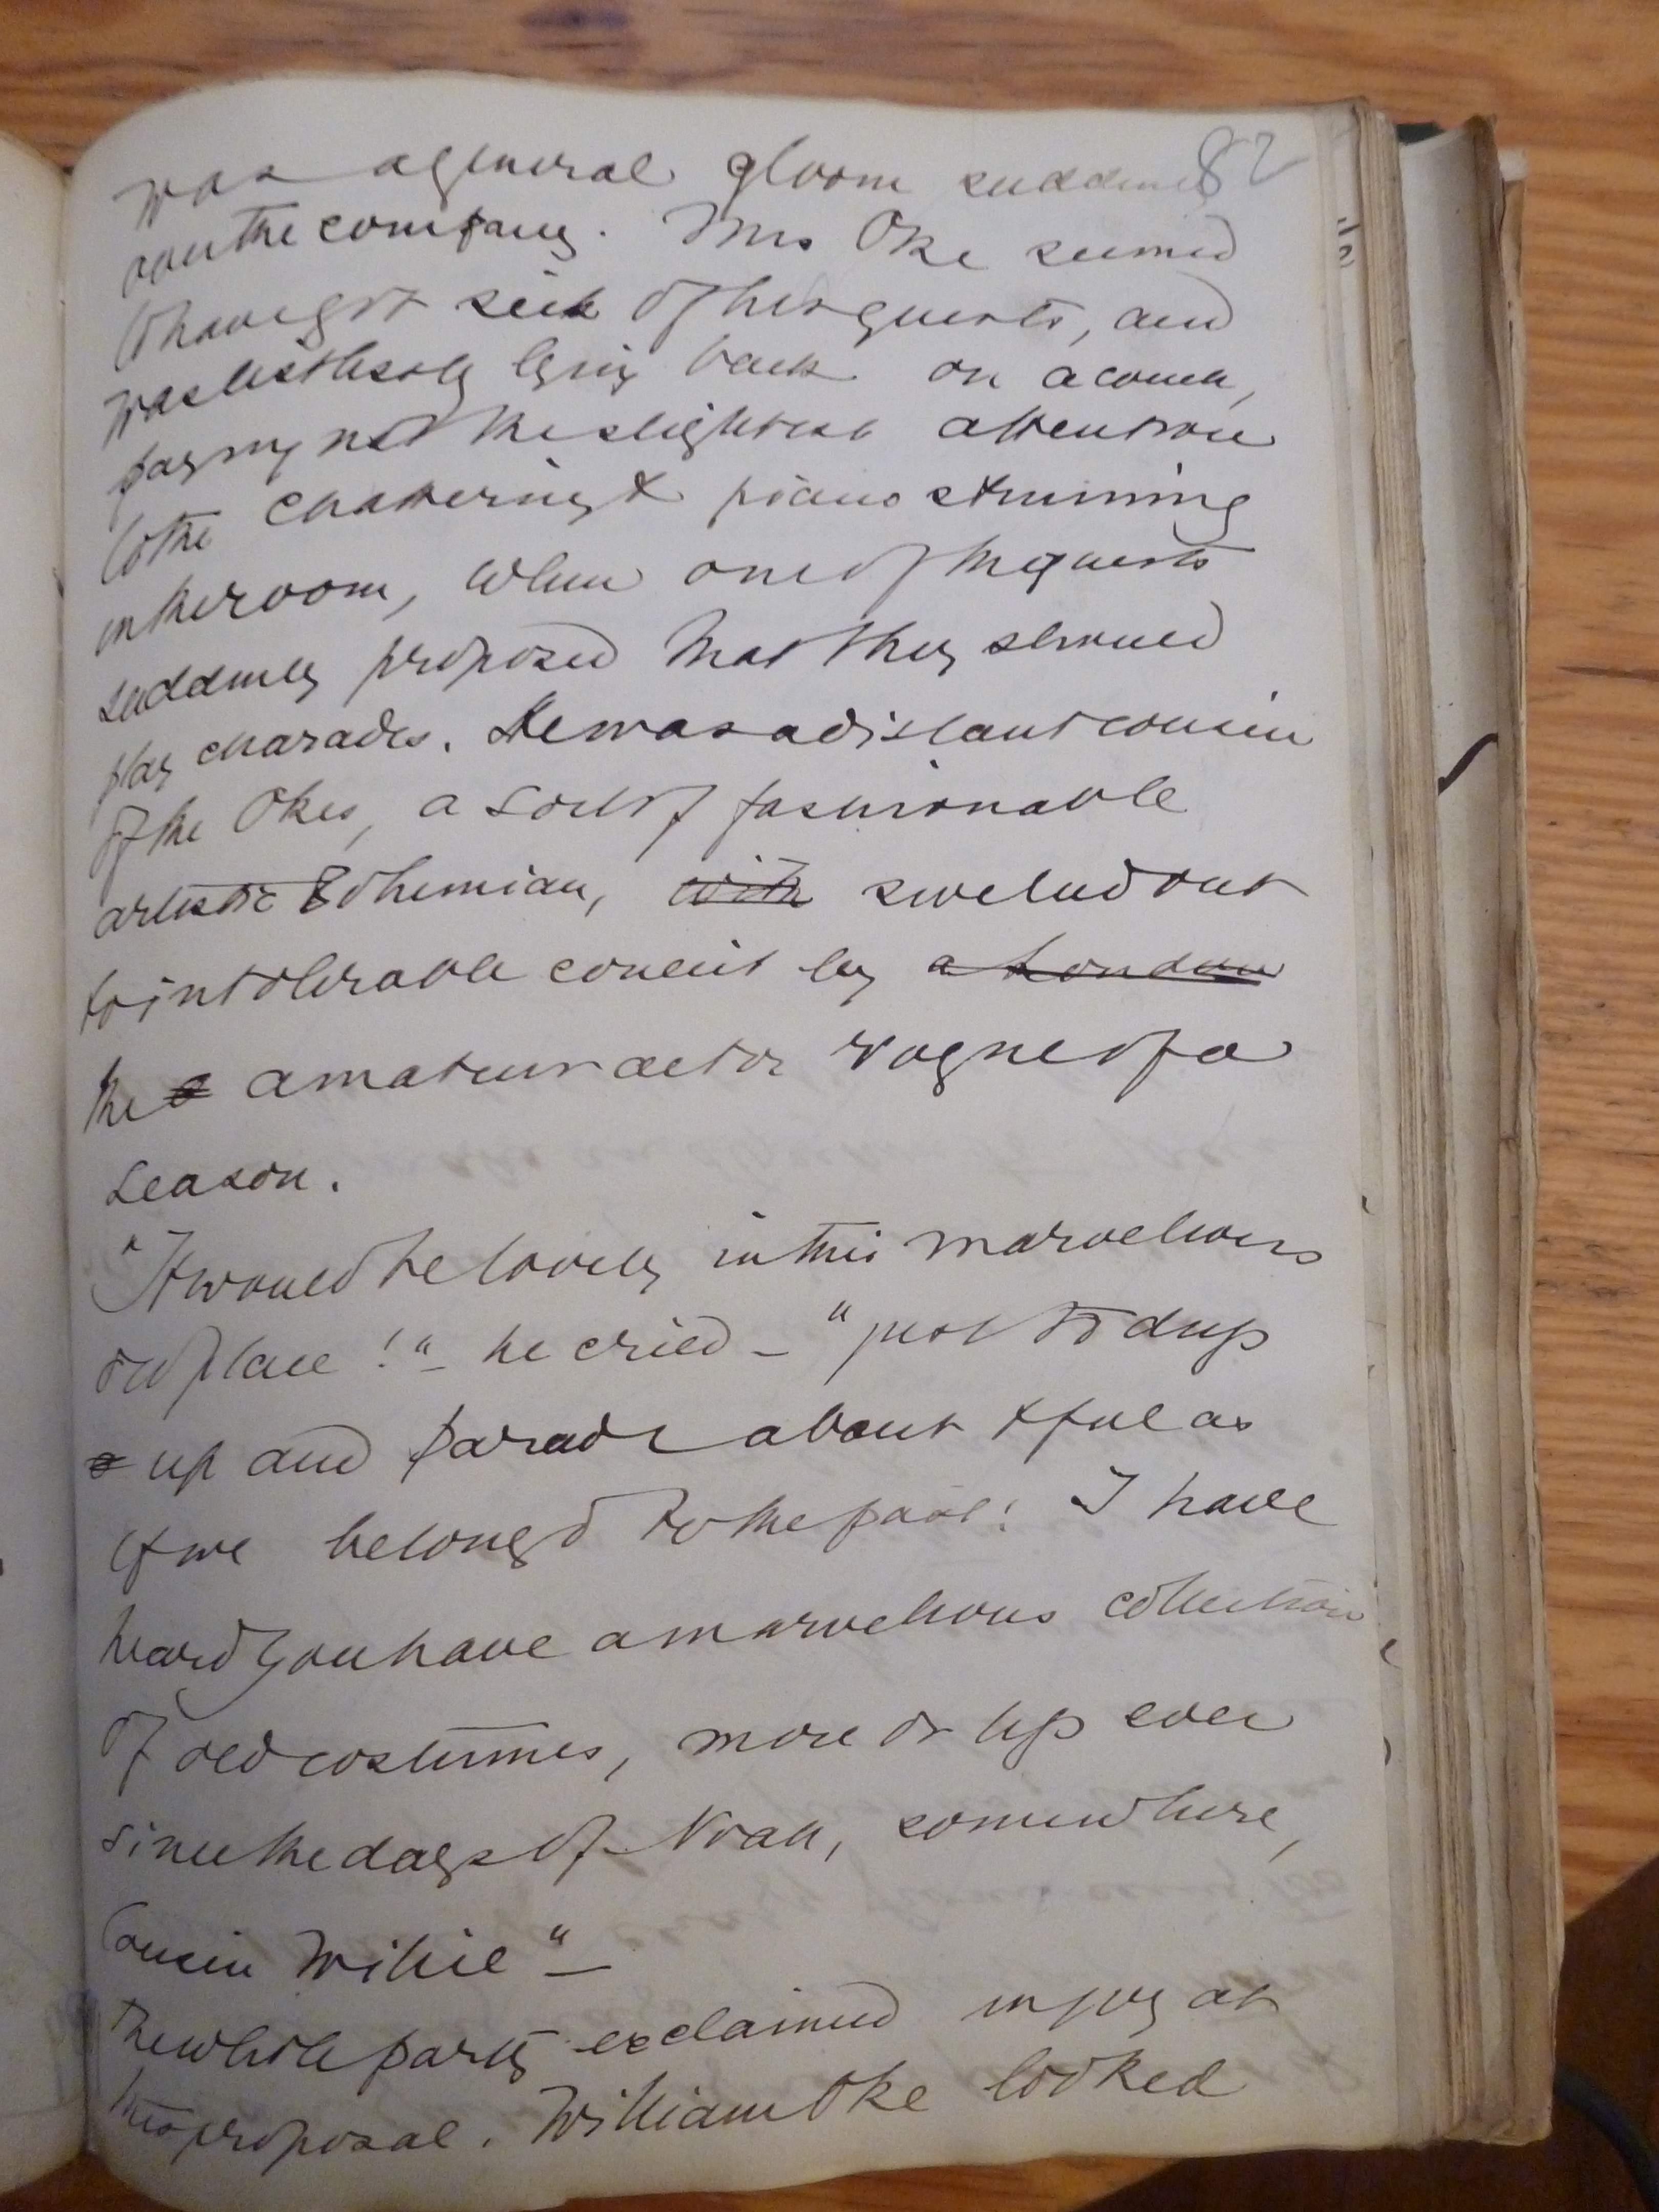 82
was a general gloom suddenly
over the company. Mrs Oke seemed
to have got sick of her guests, and
was listlessly lying back on a couch,
paying not the slightest attention
to the chattering & piano strumming
in the room, when one of the guests
suddenly proposed that they should
play charades. He was a distant cousin
of the Okes, a sort of fashionable
artistic Bohemian, with swelled out
to intolerable conceit by a London
the a amateur actor vogue of a
season.
"It would be lovely in this marvellous
old place!" – he cried – "just to dress
up and parade about & feel as
if we belonged to the past! I have
heard you have a marvellous collection
of old costumes, more or less ever
since the days of Noah, somewhere,
Cousin Willie" –
The whole party exclaimed in joy at
this proposal. William Oke looked